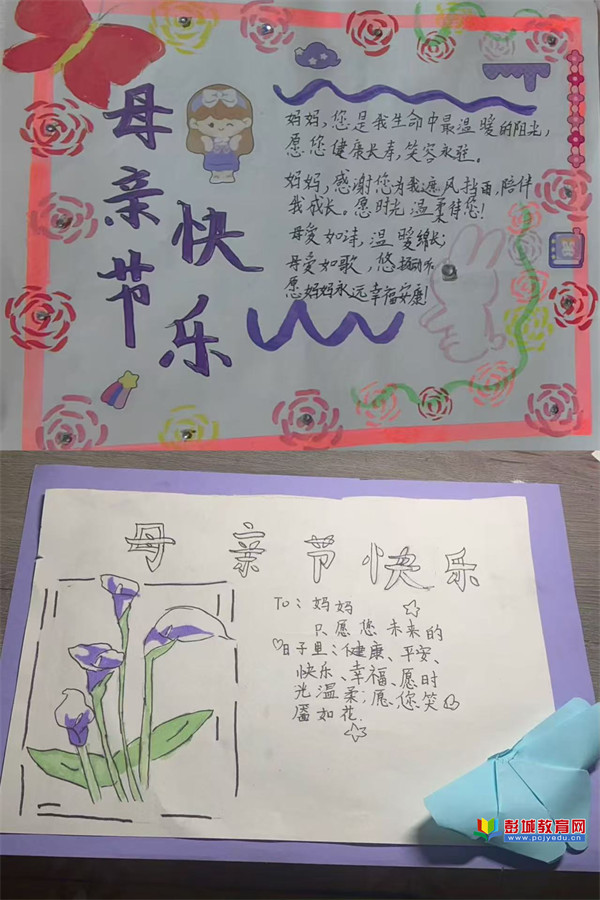 母亲节
快乐
妈妈,您是我生命中最温暖的阳光,
愿您健康长寿,笑容永驻。
妈妈,感谢您为我遮风挡雨,陪伴
我成长。愿时光温柔待您!
母爱如诗,温暖绵长
母爱如歌,悠扬动
愿妈妈永远幸福安康!
母亲节快乐
To:妈妈
只愿您未来的
日子里:健康、平安、
快乐、幸福、愿时
光温柔;愿您笑
靥如花.
彭城教育网
www.pcjyedu.cn